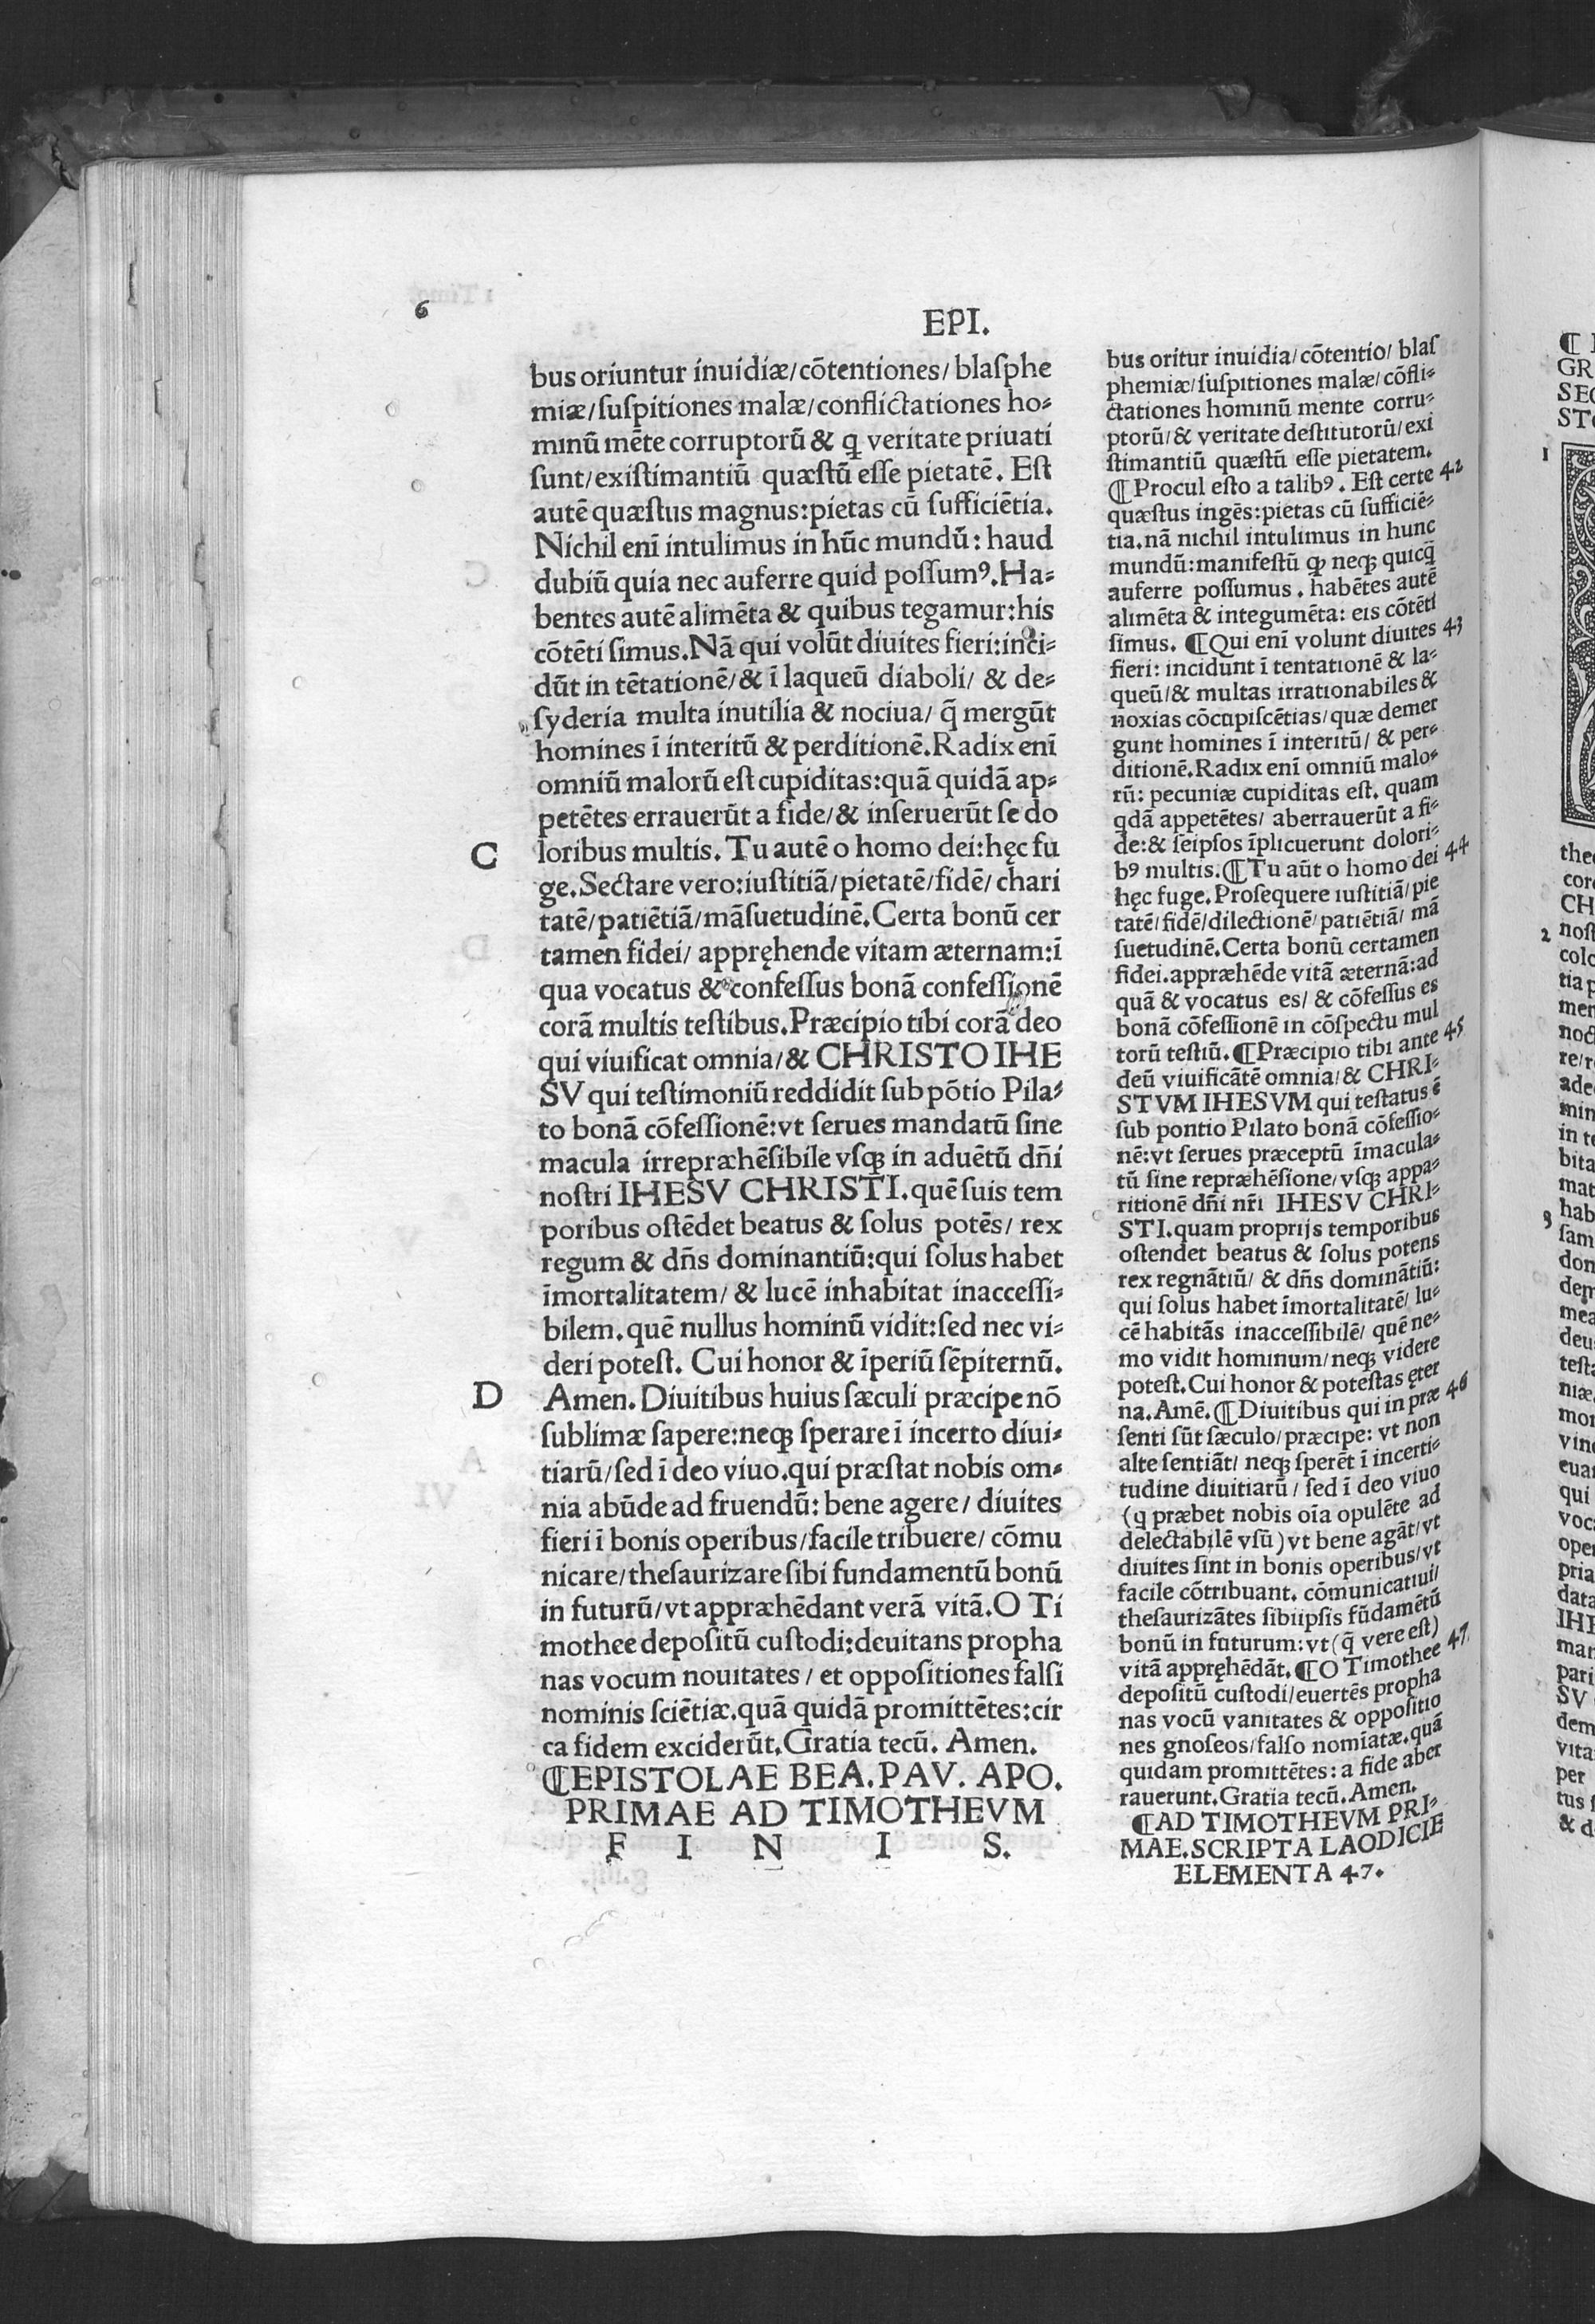 6
EPI.
bus oriuntur inuidiæ/cōtentiones/blaſphe
miæ/ſuſpitiones malæ/conflictationes ho⸗
minū mēte corruptorū & ꝗ veritate priuati
ſunt/exiſtimantiū quæſtū eſſe pietatē. Eſt
autē quæſtus magnus:pietas cū ſufficiētia.
Nichil enī intulimus in hūc mundū: haud
dubiū quia nec auferre quid poſſumꝰ.Ha⸗
bentes autē alimēta & quibus tegamur:his
cōtēti ſimus.Nā qui volūt diuites fieri:inci⸗
dūt in tētationē/& ī laqueū diaboli/ & de⸗
ſyderia multa inutilia & nociua/ q̄ mergūt
homines ī interitū & perditionē.Radix enī
omniū malorū eſt cupiditas:quā quidā ap⸗
petētes errauerūt a fide/& inſeruerūt ſe do
C
loribus multis. Tu autē o homo dei:hęc fu
ge.Sectare vero:iuſtitiā/pietatē/fidē/chari
tatē/patiētiā/māſuetudinē.Certa bonū cer
tamen fidei/ appręhende vitam æternam:ī
qua vocatus & confeſſus bonā confeſſionē
corā multis teſtibus.Præcipio tibi corā deo
qui viuificat omnia/& CHRISTO IHE
SV qui teſtimoniū reddidit ſub pōtio Pila⸗
to bonā cōfeſſionē:vt ſerues mandatū ſine
macula irrepræhēſibile vſqꝫ in aduētū dn̄i
noſtri IHESV CHRISTI.quē ſuis tem
poribus oſtēdet beatus & ſolus potēs/ rex
regum & dn̄s dominantiū:qui ſolus habet
īmortalitatem/ & lucē inhabitat inacceſſi⸗
bilem.quē nullus hominū vidit:ſed nec vi⸗
deri poteſt. Cui honor & īperiū ſēpiternū.
D
Amen. Diuitibus huius ſæculi præcipe nō
ſublimæ ſapere:neqꝫ ſperare ī incerto diui⸗
tiarū/ſed ī deo viuo.qui præſtat nobis om⸗
nia abūde ad fruendū: bene agere/ diuites
fieri ī bonis operibus/facile tribuere/ cōmu
nicare/theſaurizare ſibi fundamentū bonū
in futurū/vt appræhēdant verā vitā.O Ti
mothee depoſitū cuſtodi:deuitans propha
nas vocum nouitates / et oppoſitiones falſi
nominis ſciētiæ.quā quidā promittētes:cir
ca fidem exciderūt.Gratia tecū. Amen.
¶EPISTOLAE BEA.PAV. APO.
PRIMAE AD TIMOTHEVM
F I N I S.
bus oritur inuidia/cōtentio/ blaſ
phemiæ/ſuſpitiones malæ/cōfli⸗
ctationes hominū mente corru⸗
ptorū/& veritate deſtitutorū/exi
ſtimantiū quæſtū eſſe pietatem.
¶Procul eſto a talibꝰ. Eſt certe 42
quæſtus ingēs:pietas cū ſufficiē⸗
tia.nā nichil intulimus in hunc
mundū:manifeſtū ꝙ neqꝫ quicq̄
auferre poſſumus . habētes autē
alimēta & integumēta: eis cōtēti
ſimus. ¶Qui enī volunt diuites 43
fieri: incidunt ī tentationē & la⸗
queū/& multas irrationabiles &
noxias cōcupiſcētias/quæ demer
gunt homines ī interitū/ & per⸗
ditionē.Radix enī omniū malo⸗
rū: pecuniæ cupiditas eſt. quam
ꝗdā appetētes/ aberrauerūt a fi⸗
de:& ſeipſos īplicuerunt dolori⸗
bꝰ multis.¶Tu aūt o homo dei 44
hęc fuge.Proſequere iuſtitiā/pie
tatē/fidē/dilectionē/patiētiā/ mā
ſuetudinē.Certa bonū certamen
fidei.appræhēde vitā æternā:ad
quā & vocatus es/ & cōfeſſus es
bonā cōfeſſionē in cōſpectu mul
torū teſtiū.¶Præcipio tibi ante 45
deū viuificātē omnia/& CHRI⸗
STVM IHESVM qui teſtatus ē
ſub pontio Pilato bonā cōfeſſio⸗
nē:vt ſerues præceptū īmacula⸗
tū ſine repræhēſione/vſqꝫ appa⸗
ritionē dn̄i nr̄i IHESV CHRI⸗
STI.quam proprijs temporibus
oſtendet beatus & ſolus potens
rex regnātiū/ & dn̄s dominātiū:
qui ſolus habet īmortalitatē/ lu⸗
cē habitās inacceſſibilē/ quē ne⸗
mo vidit hominum/neqꝫ videre
poteſt.Cui honor & poteſtas ęter
na.Amē.¶Diuitibus qui in præ 46
ſenti ſūt ſæculo/præcipe: vt non
alte ſentiāt/ neqꝫ ſperēt ī incerti⸗
tudine diuitiarū / ſed ī deo viuo
(ꝗ præbet nobis oīa opulēte ad
delectabilē vſū)vt bene agāt/vt
diuites ſint in bonis operibus/vt
facile cōtribuant. cōmunicatiui/
theſaurizātes ſibiipſis fūdamētū
bonū in futurum:vt(q̄ vere eſt)
vitā appręhēdāt.¶O Timothee 47
depoſitū cuſtodi/euertēs propha
nas vocū vanitates & oppoſitio
nes gnoſeos/falſo nomīatæ.quā
quidam promittētes: a fide aber
rauerunt.Gratia tecū.Amen.
¶AD TIMOTHEVM PRI⸗
MAE.SCRIPTA LAODICIE
ELEMENTA 47.